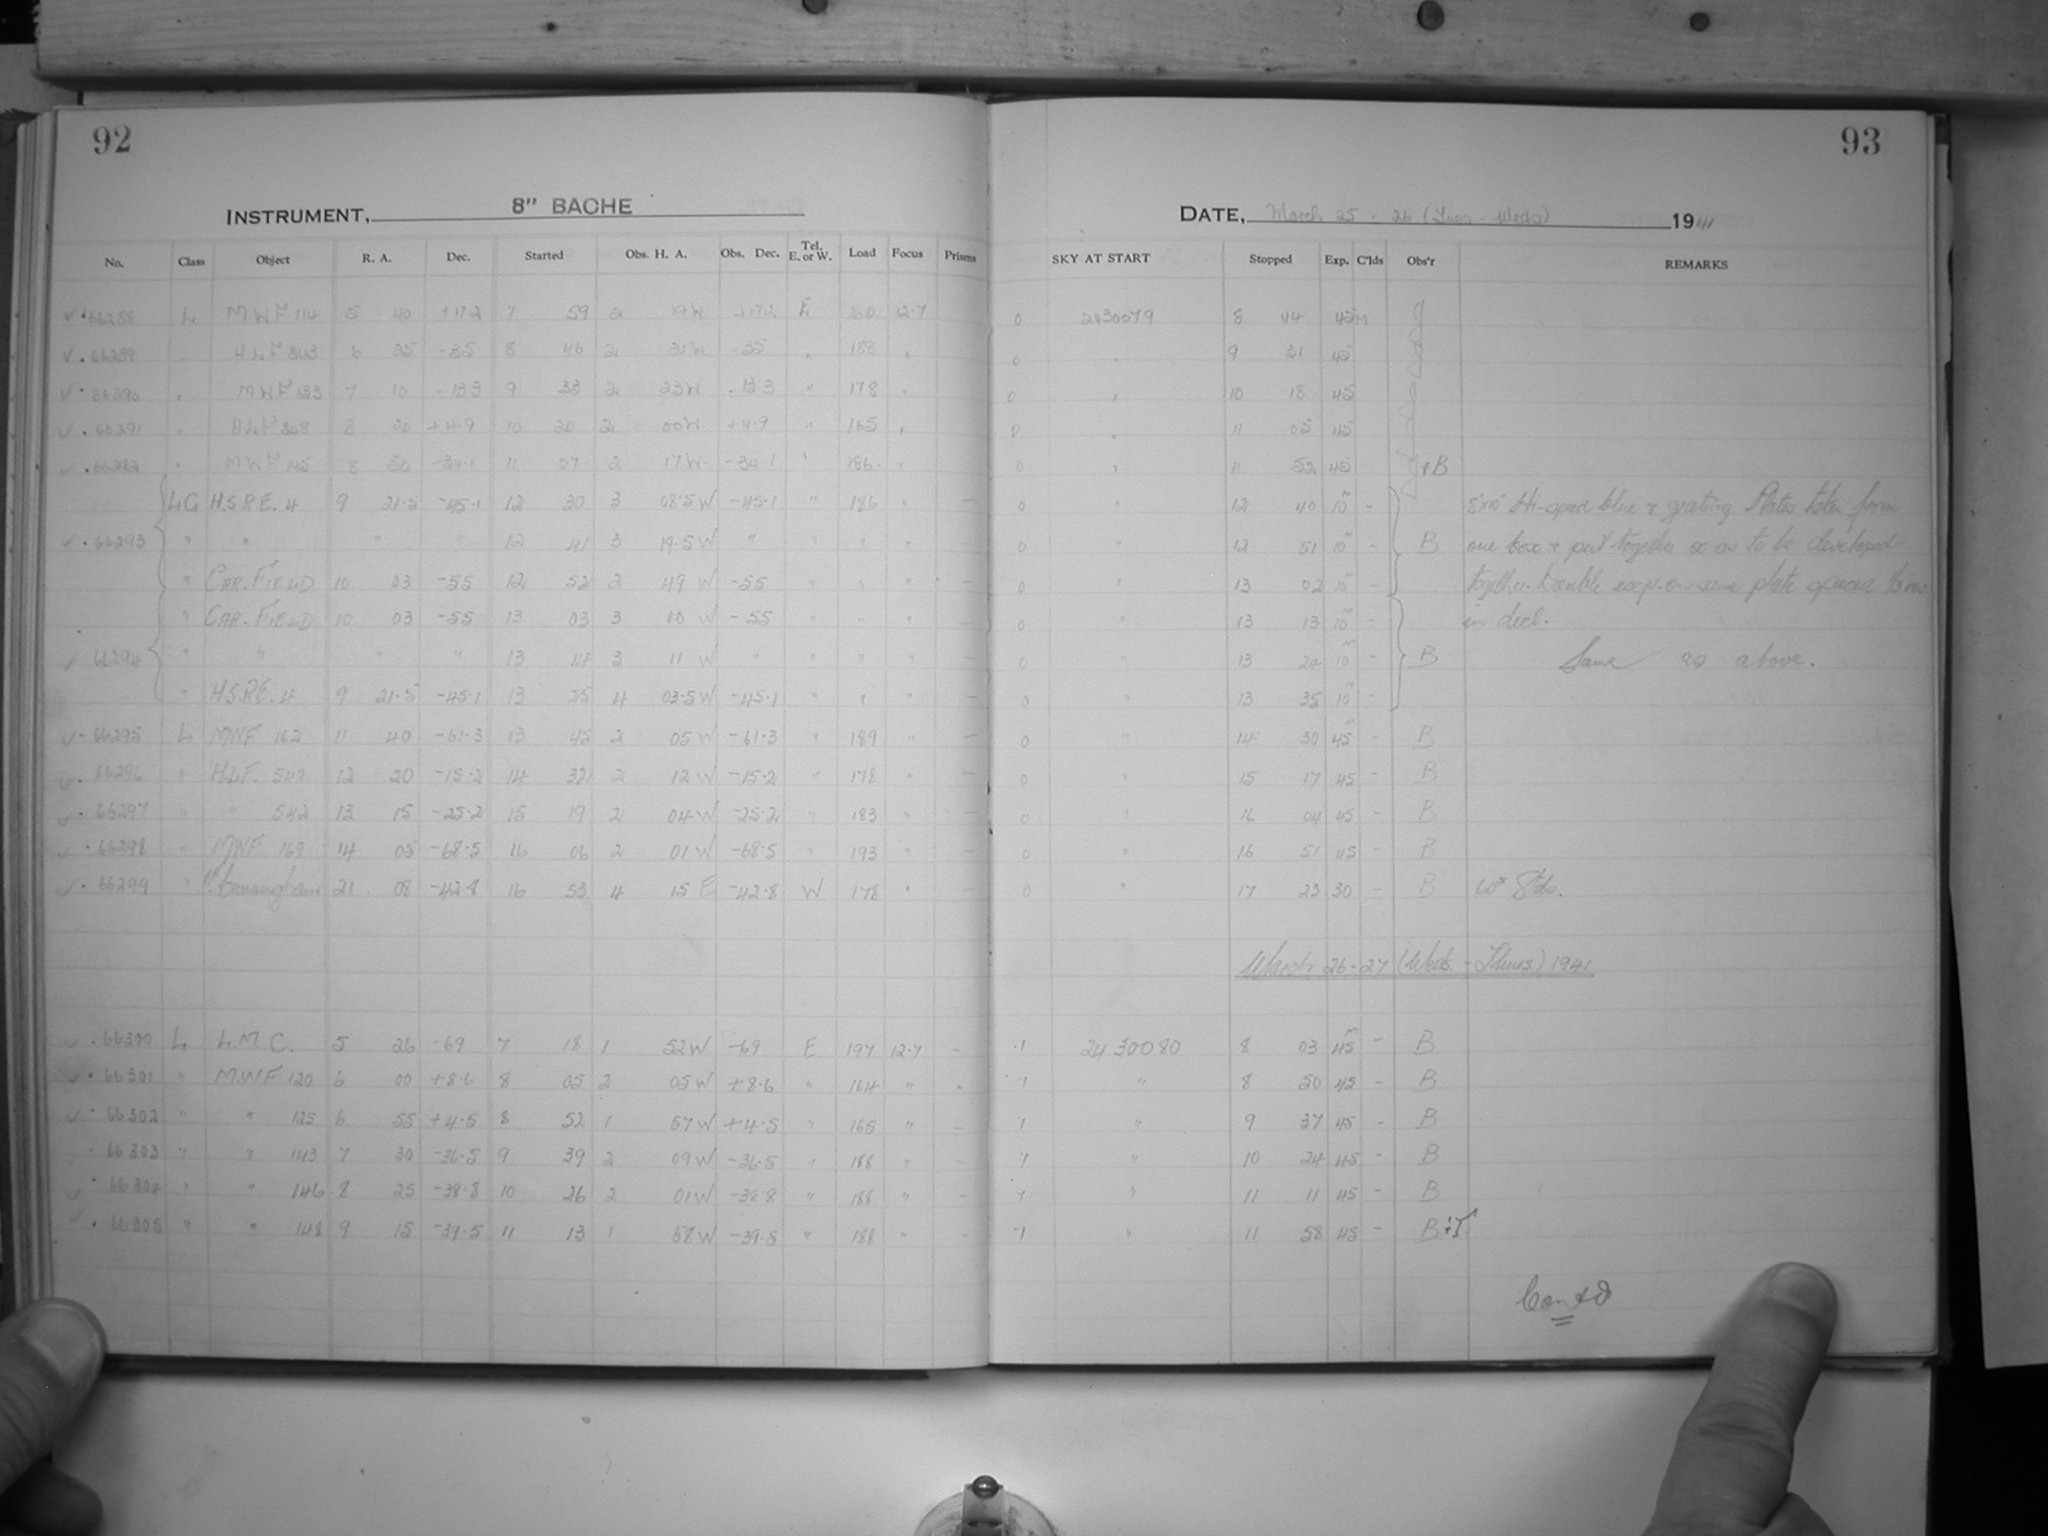 92
93
INSTRUMENT, 8" BACHE
DATE, March 25 - 26 (Tues - Weds) 1941
No. Class Object R. A. Dec. Started Obs. H. A. Obs. Dec. Tel. E. or W. Load Focus Prisms SKY AT START Stopped Exp. C'lds Obs'r REMARKS
66288 L MWF 114 5 40 +17.2 7 59 2 19W +17.2 E 160 12.7 0 2430079 8 44 45m
66289 " HLF 6 35 -35 8 46 2 21W -35 " 188 " 0 " 9 31 45
66290 " MWF 133 7 10 -13.3 9 33 2 23W -13.3 " 178 " 0 " 10 18 45
66291 " HLF 8 20 +4.9 10 20 2 00W +4.9 " 165 " 0 " 11 05 45
66292 " MWF 145 8 50 -34.1 11 07 2 17W -34.1 " 186 " 0 " 11 52 45 +B
LG H.S.R.E. 4 9 21.5 -45.1 12 30 3 08.5W -45.1 " 186 " - 0 " 12 40 10m - 8"x10" Hi-speed blue + grating. Plates taken from
66293 " " " " 12 41 3 19.5W " " " " - 0 " 12 51 10m - B one box + put together so as to be developed
" CAR. FIELD 10 03 -55 12 52 2 49 W -55 " " " - 0 " 13 02 10m - together. Double exp. on same plate spaced
" CAR. FIELD 10 03 -55 13 03 3 00 W -55 " " " - 0 " 13 13 10m - in decl.
66294 " " " " 13 14 3 11 W " " " " - 0 " 13 24 10m - B Same as above.
" H.S.R.E. 4 9 21.5 -45.1 13 25 4 03.5W -45.1 " " " - 0 " 13 35 10m -
66295 L MWF 162 11 40 -61.3 13 45 2 05 W -61.3 " 189 " - 0 " 14 30 45m - B
66296 " H.L.F. 12 20 -15.2 14 32 2 12 W -15.2 " 178 " 0 " 15 17 45 - B
66297 " " 542 13 15 -25.2 15 19 2 04W -25.2 " 183 " - 0 " 16 04 45 - B
66298 " MWF 169 14 05 -68.5 16 06 2 01 W -68.5 " 193 " - 0 " 16 51 45 - B
66299 " "Cunningham 21 08 -42.8 16 53 4 15 E -42.8 W 178 " - 0 " 17 23 30 - B
March 26-27 (Weds. - Thurs.) 1941
66300 L L.M.C. 5 26 -69 7 18 1 52W -69 E 197 12.7 - .1 2430080 8 03 45m - B
66301 " M.W.F 120 6 00 +8.6 8 05 2 05W +8.6 " 164 " - .1 " 8 50 45 - B
66302 " " 125 6 55 +4.5 8 52 1 57W +4.5 " 165 " - .1 " 9 37 45 - B
66303 " " 143 7 30 -36.5 9 39 2 09W -36.5 " 188 " - .1 " 10 24 45 - B
66304 " " 146 8 25 -38.8 10 26 2 01W -38.8 " 188 " - .1 " 11 11 45 - B
66305 " " 148 9 15 -39.5 11 13 1 58W -39.5 " 188 " - .1 " 11 58 45 - B+T
Contd